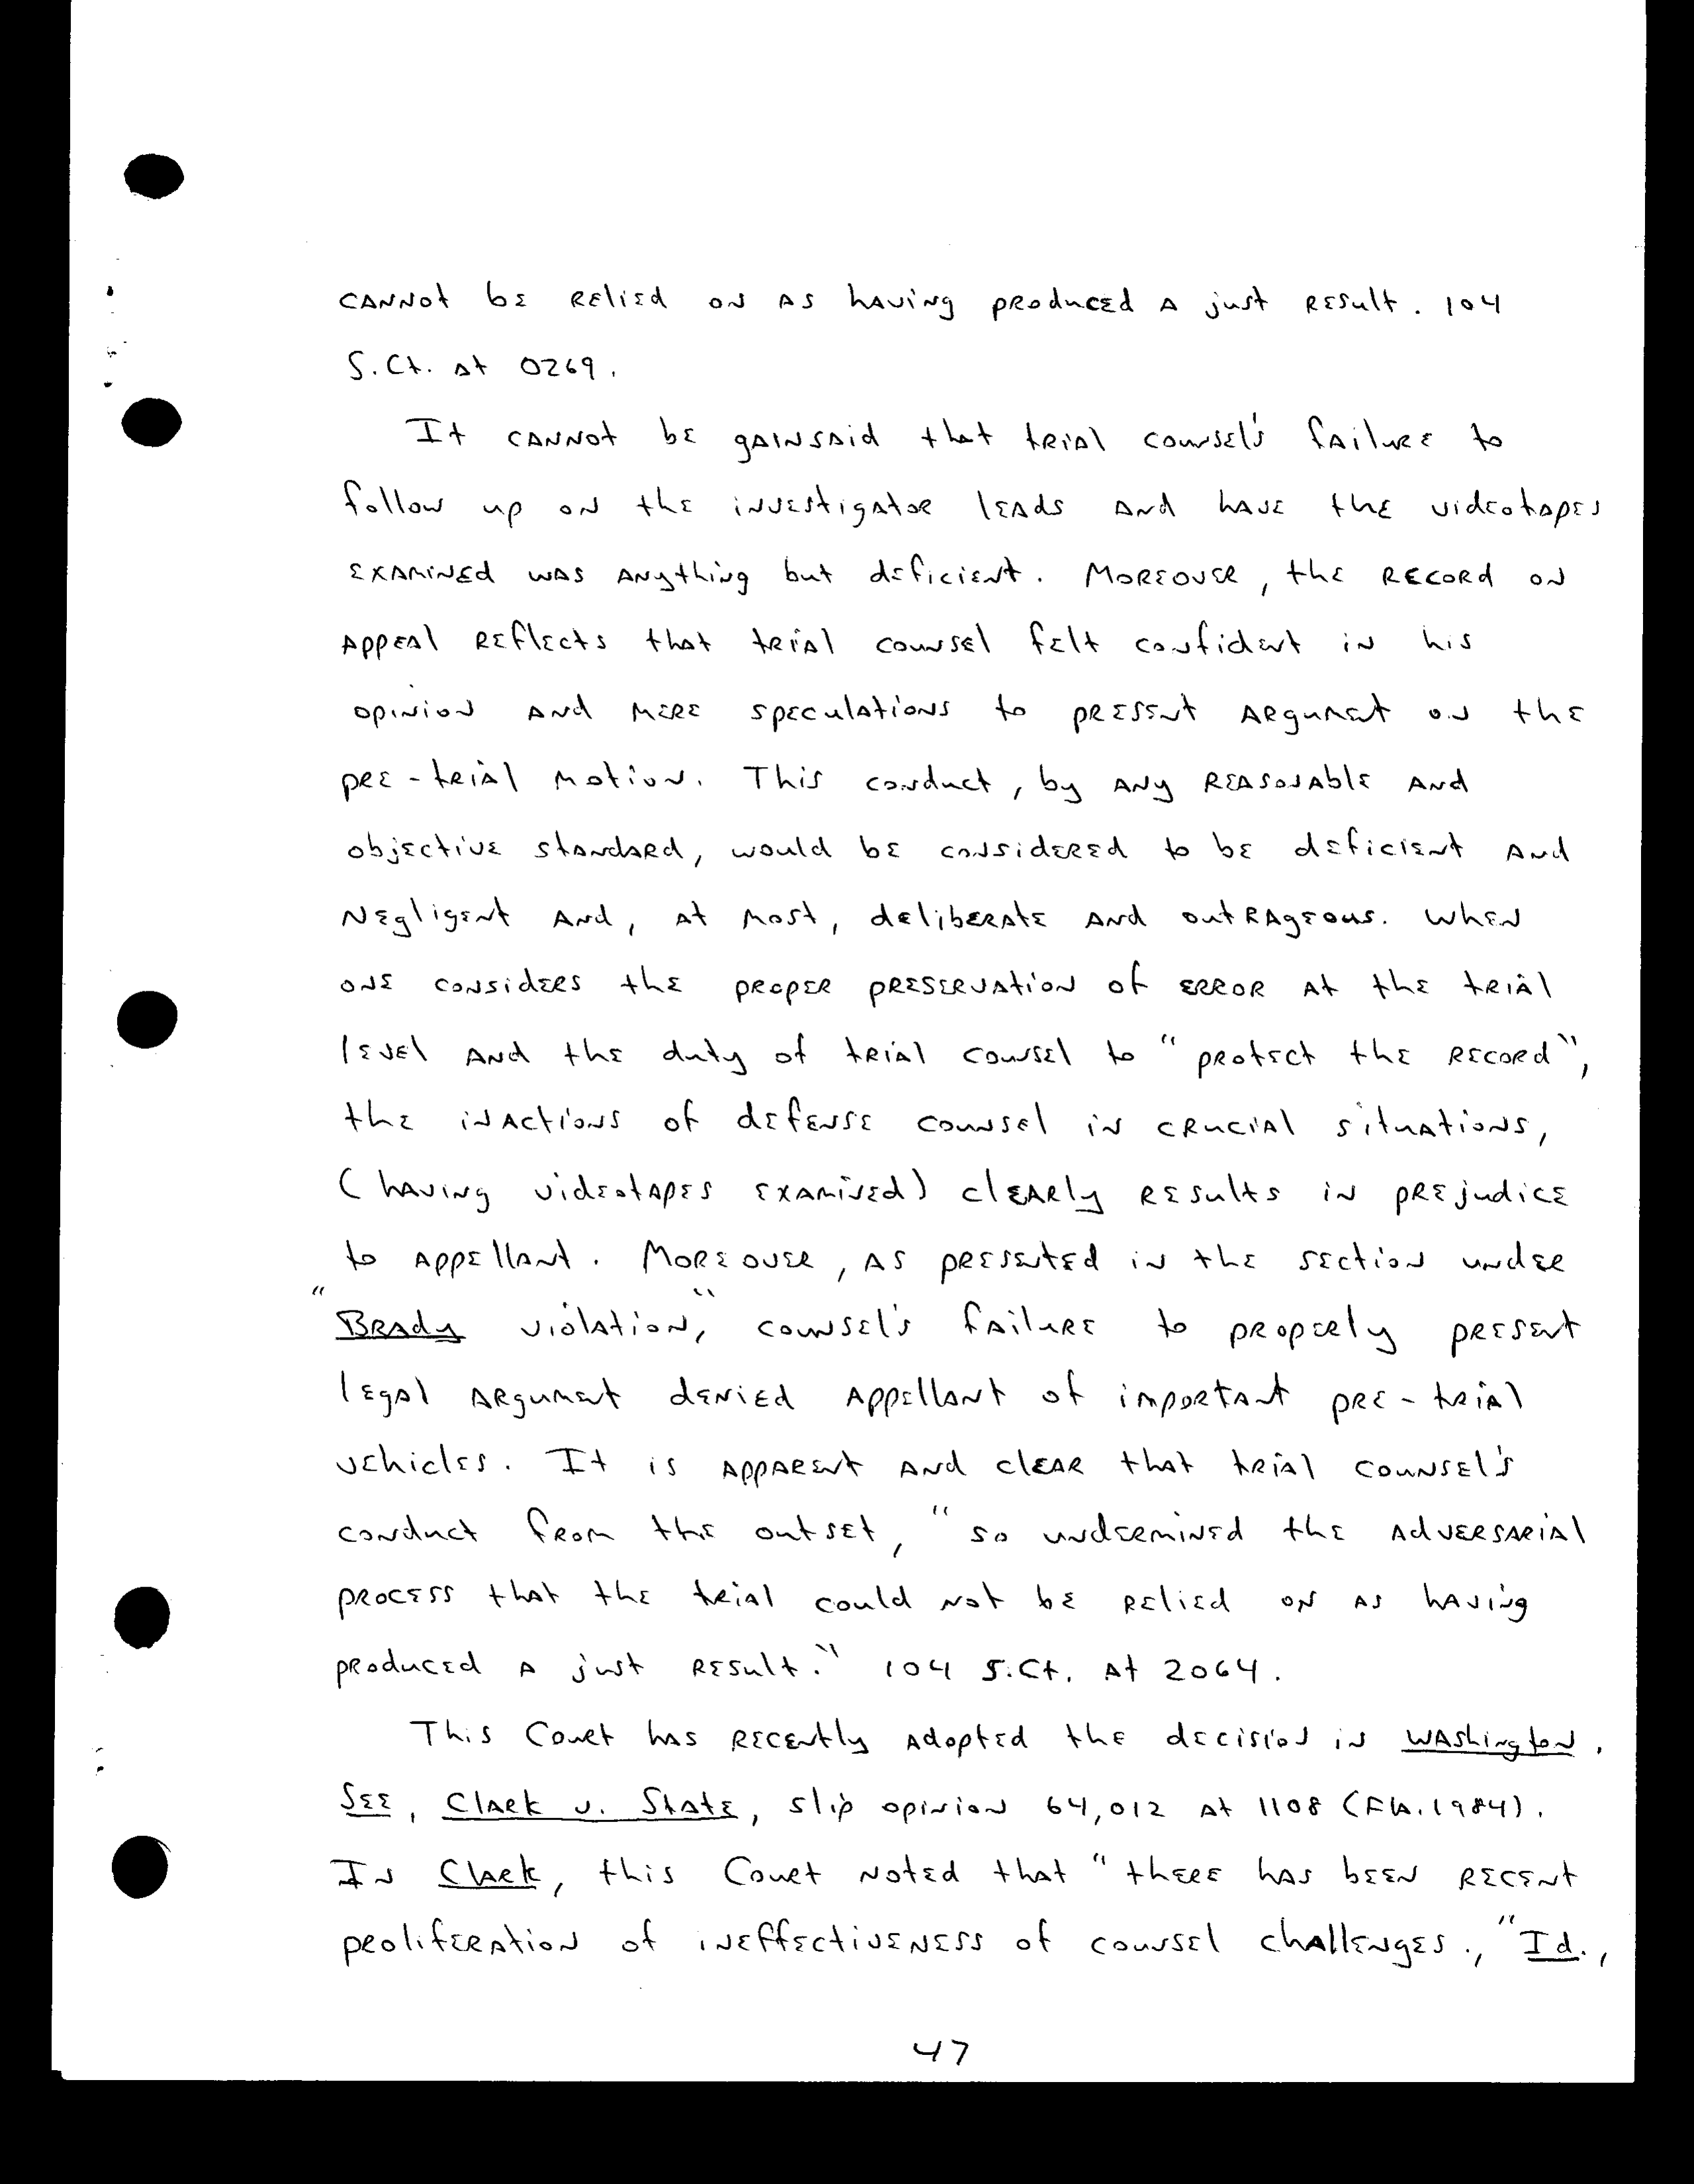 cannot be relied on as having produced a just result. 104
S.Ct. at 0269.
It cannot be gainsaid that trial counsel's failure to
follow up on the investigator leads and have the videotapes
examined was anything but deficient. Moreover, the record on
appeal reflects that trial counsel felt confident in his
opinion and mere speculations to present argument on the
pre-trial motion. This conduct, by any reasonable and
objective standard, would be considered to be deficient and
negligent and, at most, deliberate and outrageous. When
one considers the proper preservation of error at the trial
level and the duty of trial counsel to "protect the record",
the inactions of defense counsel in crucial situations,
(having videotapes examined) clearly results in prejudice
to appellant. Moreover, as presented in the section under
"Brady violation," counsel's failure to properly present
legal argument denied appellant of important pre-trial
vehicles. It is apparent and clear that trial counsel's
conduct from the outset, "so undermined the adversarial
process that the trial could not be relied on as having
produced a just result." 104 S.Ct. at 2064.
This Court has recently adopted the decision in Washington.
See, Clark v. State, slip opinion 64,012 at 1108 (Fla. 1984).
In Clark, this Court noted that "there has been recent
proliferation of ineffectiveness of counsel challenges., "Id.,
47